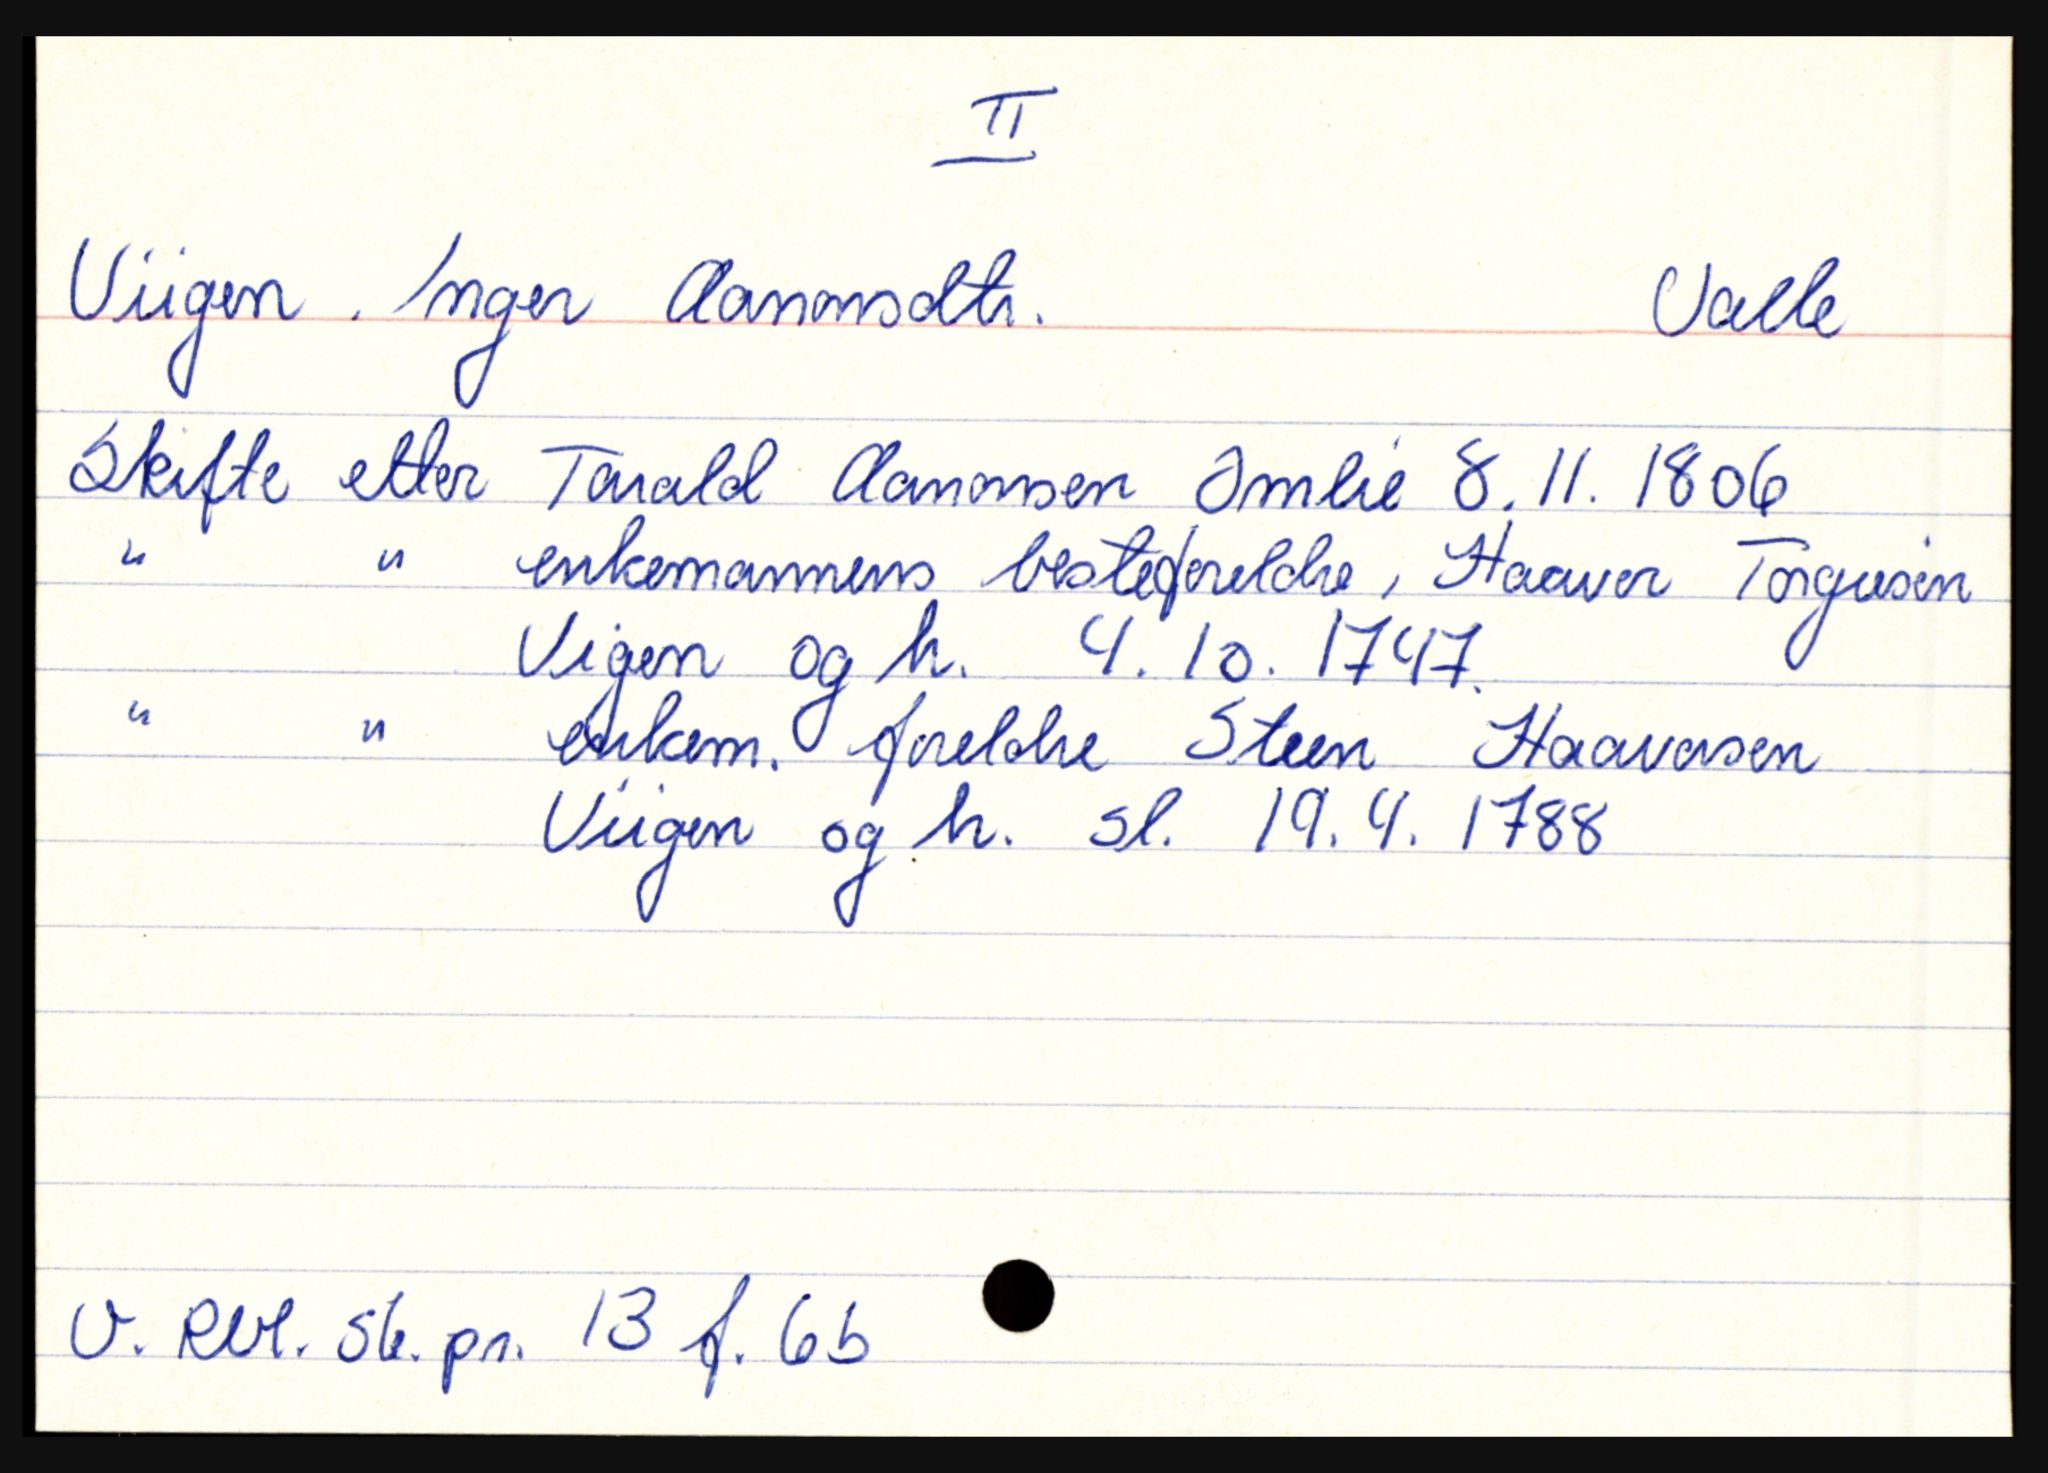 II
Viigen. Inger Aanonsdtr. Valle
Skifte etter Tarald Aanonsen Omlie 8.11.1806
" " enkemannens besteforeldre, Haavor Torgusen
Vigen og h. 4.10.1747.
" " enkem. foreldre Steen Haavorsen
Viigen og h. sl. 19.4.1788
V. Rbl. sk. pr. 13 f. 6b